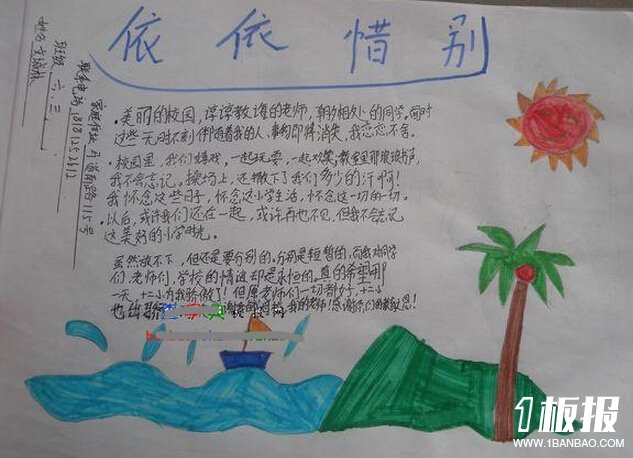 依依惜别
班级 六.三
·美丽的校园,谆谆教诲的老师,朝夕相处的同学,面对
这些无时不刻伴随着我的人、事物即将消失,我恋恋不舍。
·校园里,我们嬉戏,一起玩耍,一起欢笑,教室里那琅琅书声,
我不会忘记。操场上,还撒下了我们多少的汗啊!
我怀念这些日子,怀念这小学生活,怀念这一切的一切。
·以后,或许我们还在一起,或许再也不见,但我不会忘记
这美好的小学时光。
虽然放不下,但还是要分别的。分别是短暂的,而我对同学
们,老师们,学校的情谊却是永恒的。真的希望那
一天,十二小为我骄傲了!但愿老师们一切都好,十二小
1板报
WWW.1BANBAO.COM